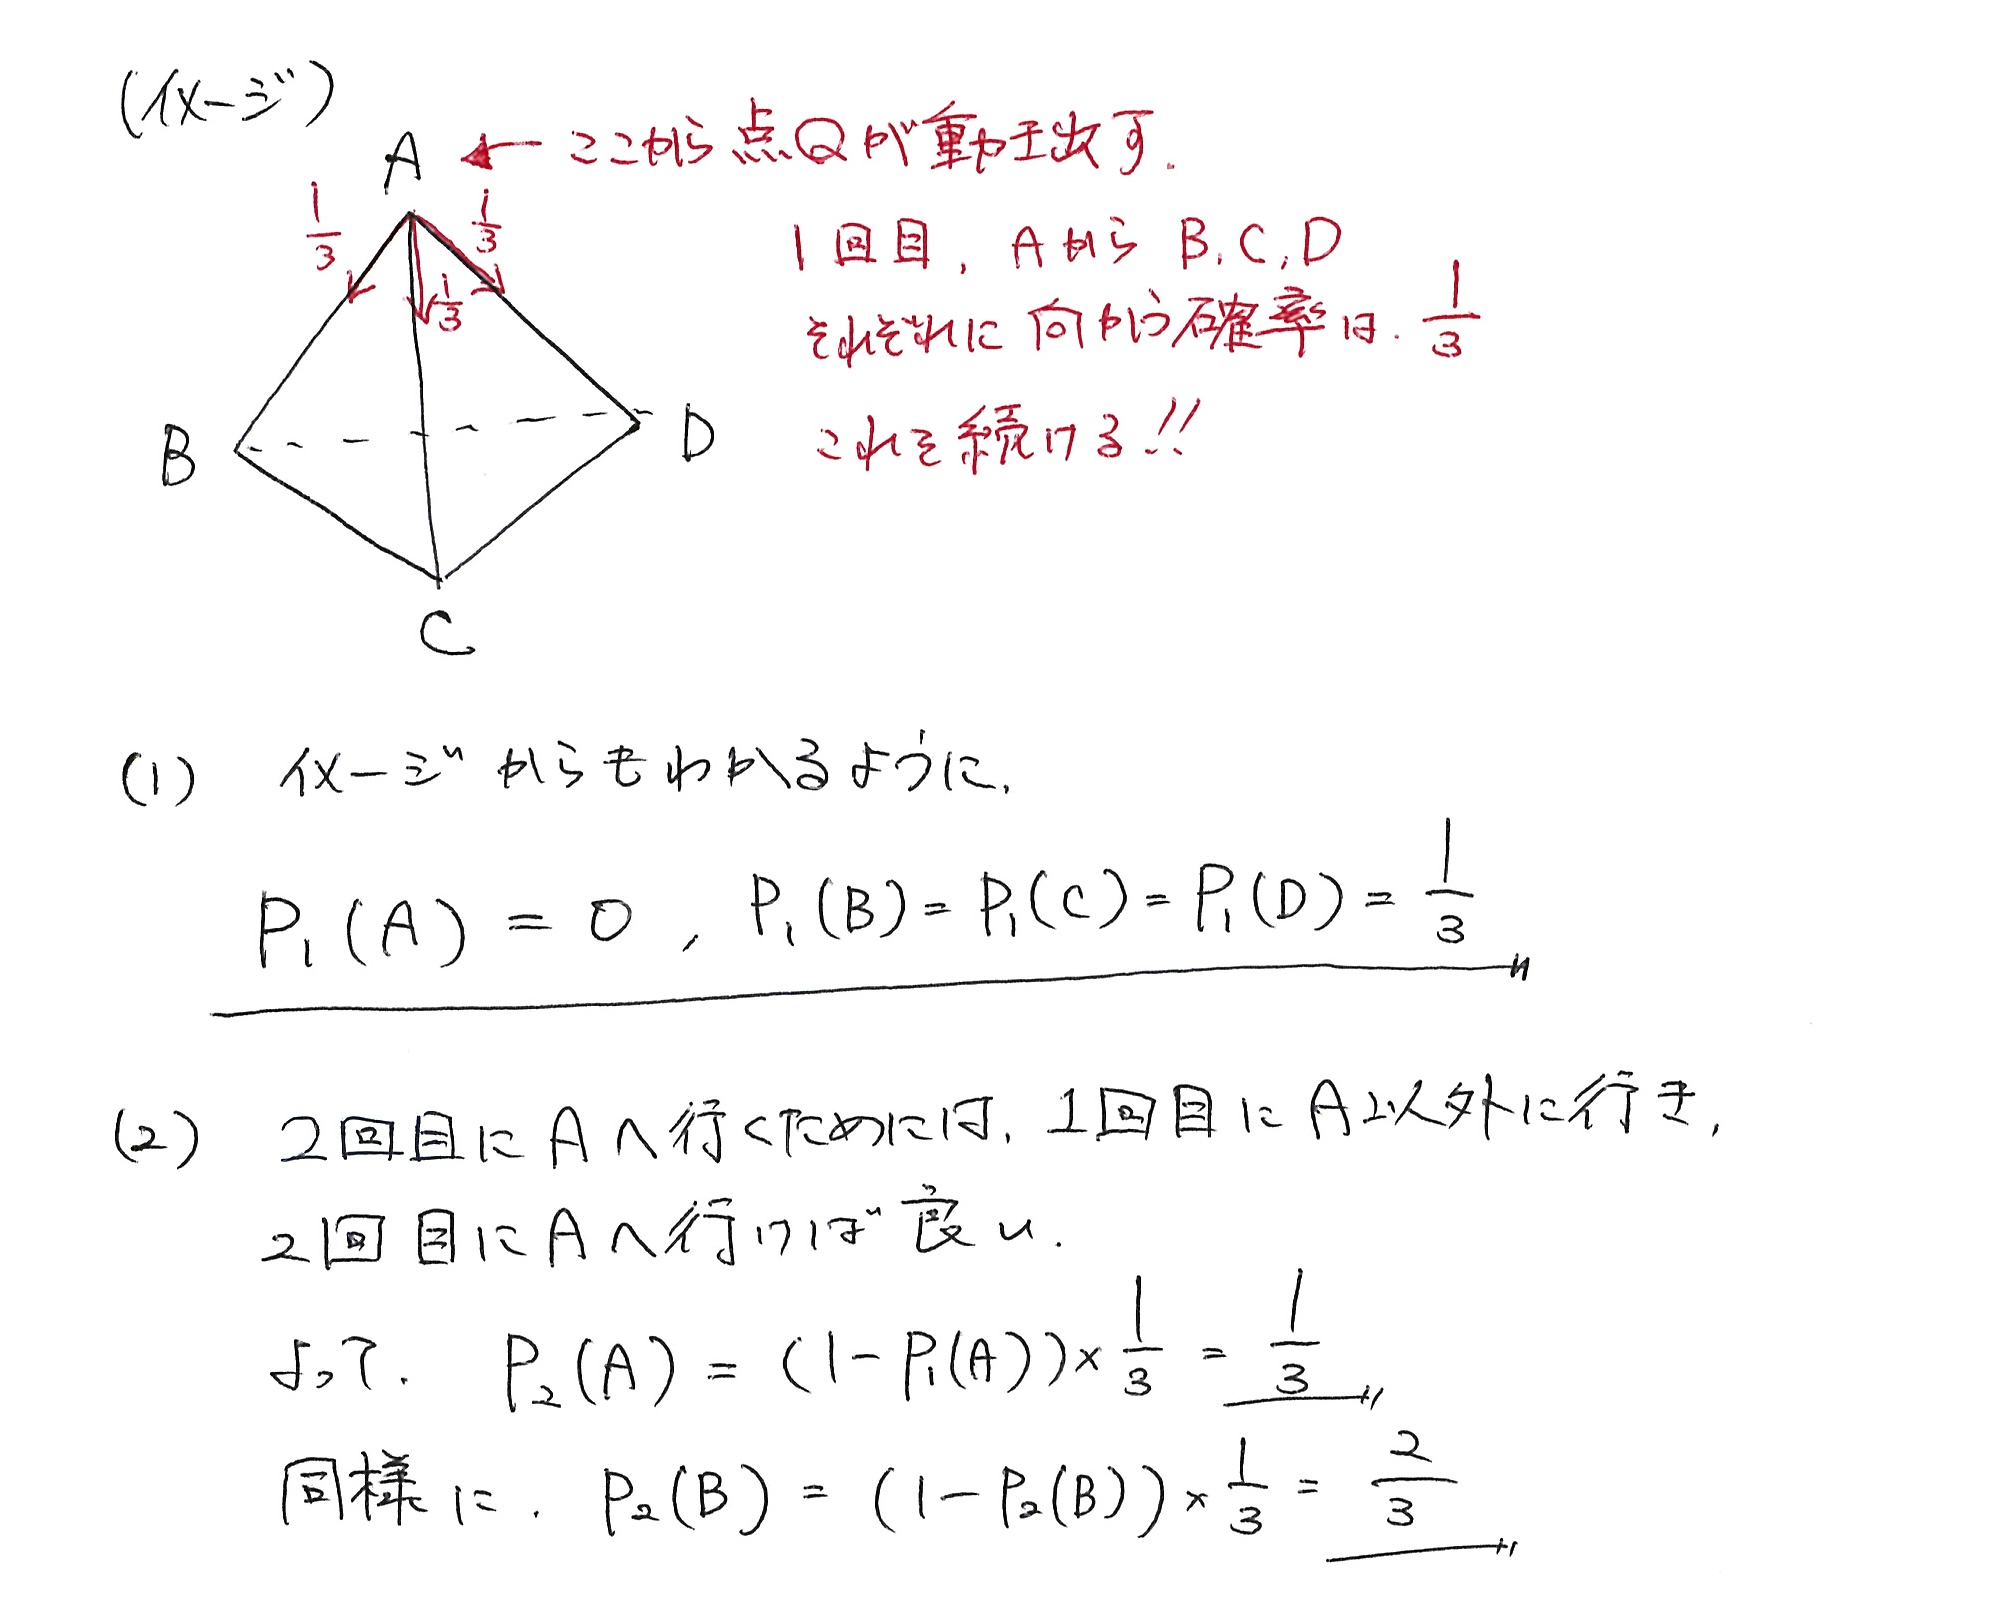 (イメージ)
A ← ここから点Qが動き出す.
1/3 1/3 1/3
1回目, AからB,C,D
それぞれに向かう確率は. 1/3
これを続ける!!
B D
C
(1) イメージからもわかるように,
P₁(A) = 0, P₁(B) = P₁(C) = P₁(D) = 1/3
(2) 2回目にAへ行くためには, 1回目にA以外に行き,
2回目にAへ行けば良い.
よって, P₂(A) = (1-P₁(A))×1/3 = 1/3
同様に, P₂(B) = (1-P₂(B))×1/3 = 2/3